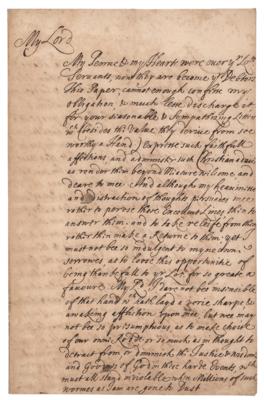 My Lord
My Penne & my Heart were ever yr Lps
Servants, now they are become yr Debtors
This Paper, cannot enough confesse my
obligation, & much lesse discharge it
for your seasonable & Sympathising Letter
wch besides the Value they derive from soe
worthy a Hand) Expresse such faithfull
affections, and administer such Christian advice
as render them beyond Measure welcome, and
deare to mee. And although my heavinesse
and distraction of thoughts perswades mee
rather to peruse those Excellent Lines then to
answer them, and to be releife from them
rather then make a Returne to them; yet I
must not bee so indulgent to my owne
sorrowes as to loose this opportunitie of
being thankfull to yr Lp. for so greate a
favoure. My Ld I dare not bee insensible
of that hand wch hath laid a verie sharpe &
awaking affliction upon mee, but wee may
not bee so presumptuous, as to make choise
of our own Rodds or so much as in thought to
detract from or diminish the Justice & wisdome
and Goodness of God in those harde Events, wch
must all stand inviolable when Millions of such
wormes as I am are gone to Dust